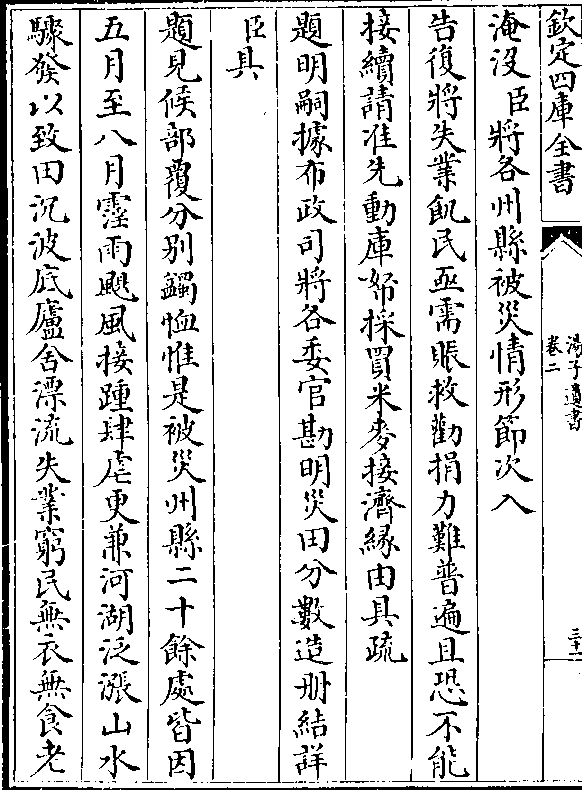 欽定四庫全書
湯子遺書
卷二
三十一
淹没臣將各州縣被災情形節次入
告復將失業飢民亟需賑救勸捐力難普遍且恐不能
接續請准先動庫帑採買米麥接濟緣由具疏
題明嗣據布政司將各委官勘明災田分數造册結詳
臣具
題見候部覆分别蠲恤惟是被災州縣二十餘處皆因
五月至八月霪雨颶風接踵肆虐更兼河湖泛漲山水
驟發以致田沉波底廬舍漂流失業窮民無衣無食老